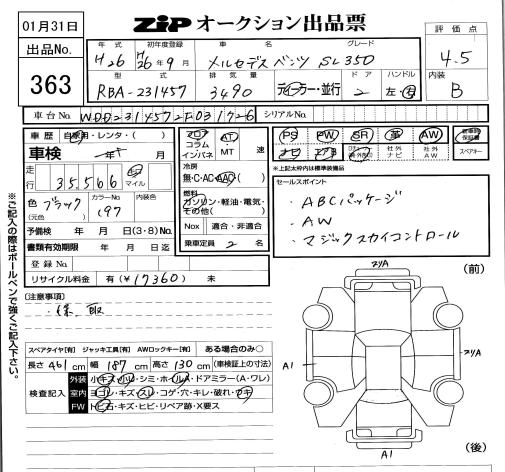 01月31日
出品No.
363
ZIP オークション出品票
評価点
4.5
内装
B
年式 初年度登録 車名 グレード
H26 H26年9月 メルセデスベンツ SL350
型式 排気量 ドア ハンドル
RBA-231457 3490 ディーラー・並行 2 左・右
車台No. WDD2314572F031726 シリアルNo.
車歴 自家用・レンタ・( )
車検 年 月
走行 35,566 km マイル
色 ブラック (元色) カラーNo. 197 内装色
予備検 年 月 日(3・8)No.
書類有効期限 年 月 日迄
登録No.
リサイクル料金 有(¥17360) 未
フロア コラム インパネ AT・MT 速
冷房
無・C・AC・AAC( )
燃料
ガソリン・軽油・電気・その他( )
Nox 適合・非適合
乗車定員 2 名
PS PW SR 革 AW
ナビ 社外ナビ 社外AW
新車時保証書
スペアキー
※上記太枠内は標準装備品
セールスポイント
・ABCパッケージ
・AW
・マジックスカイコントロール
※ご記入の際はボールペンで強くご記入下さい。
(注意事項)
スペアタイヤ[有] ジャッキ工具[有] AWロックキー[有] ある場合のみ○
長さ 461 cm 幅 187 cm 高さ 130 cm (車検証上の寸法)
検査記入
外装 小キズ・小凹・シミ・ホイルA・ドアミラー(A・ワレ)
室内 ヨゴレ・キズ・スレ・コゲ・穴・キレ・破れ・ウキ
FW トビ石・キズ・ヒビ・リペア跡・X要ス
(前)
A1
A1
(後)